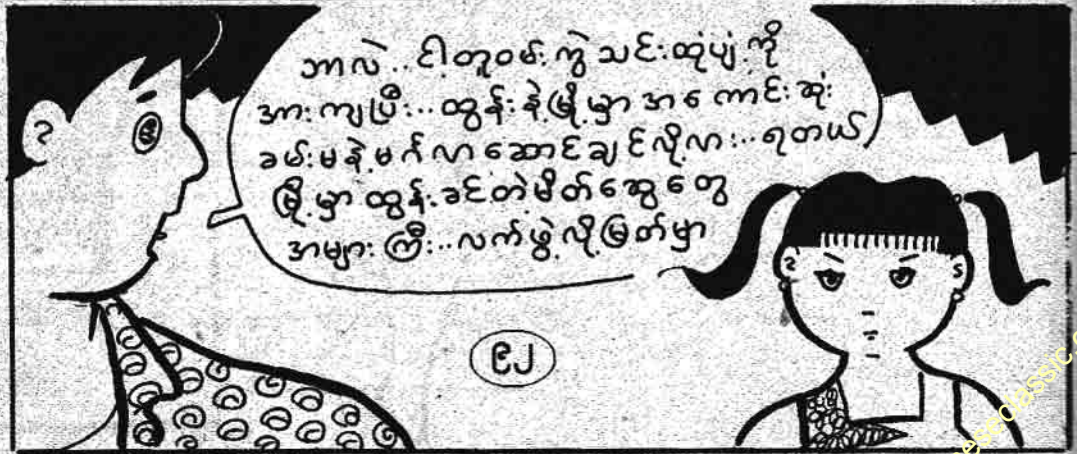 ဘာလဲ.. ငါ့တူဝမ်းကွဲ သင်းထုံပျံ့ ကို
အားကျပြီး.. ထွန်းနဲ့မြို့မှာ အကောင်းဆုံး
ခမ်းမနဲ့ မင်္ဂလာဆောင်ချင်လို့လား.. ရတယ်
မြို့မှာ ထွန်းခင်တဲ့မိတ်ဆွေတွေ
အများကြီး.. လက်ဖွဲ့လို့မြတ်မှာ
၉၂